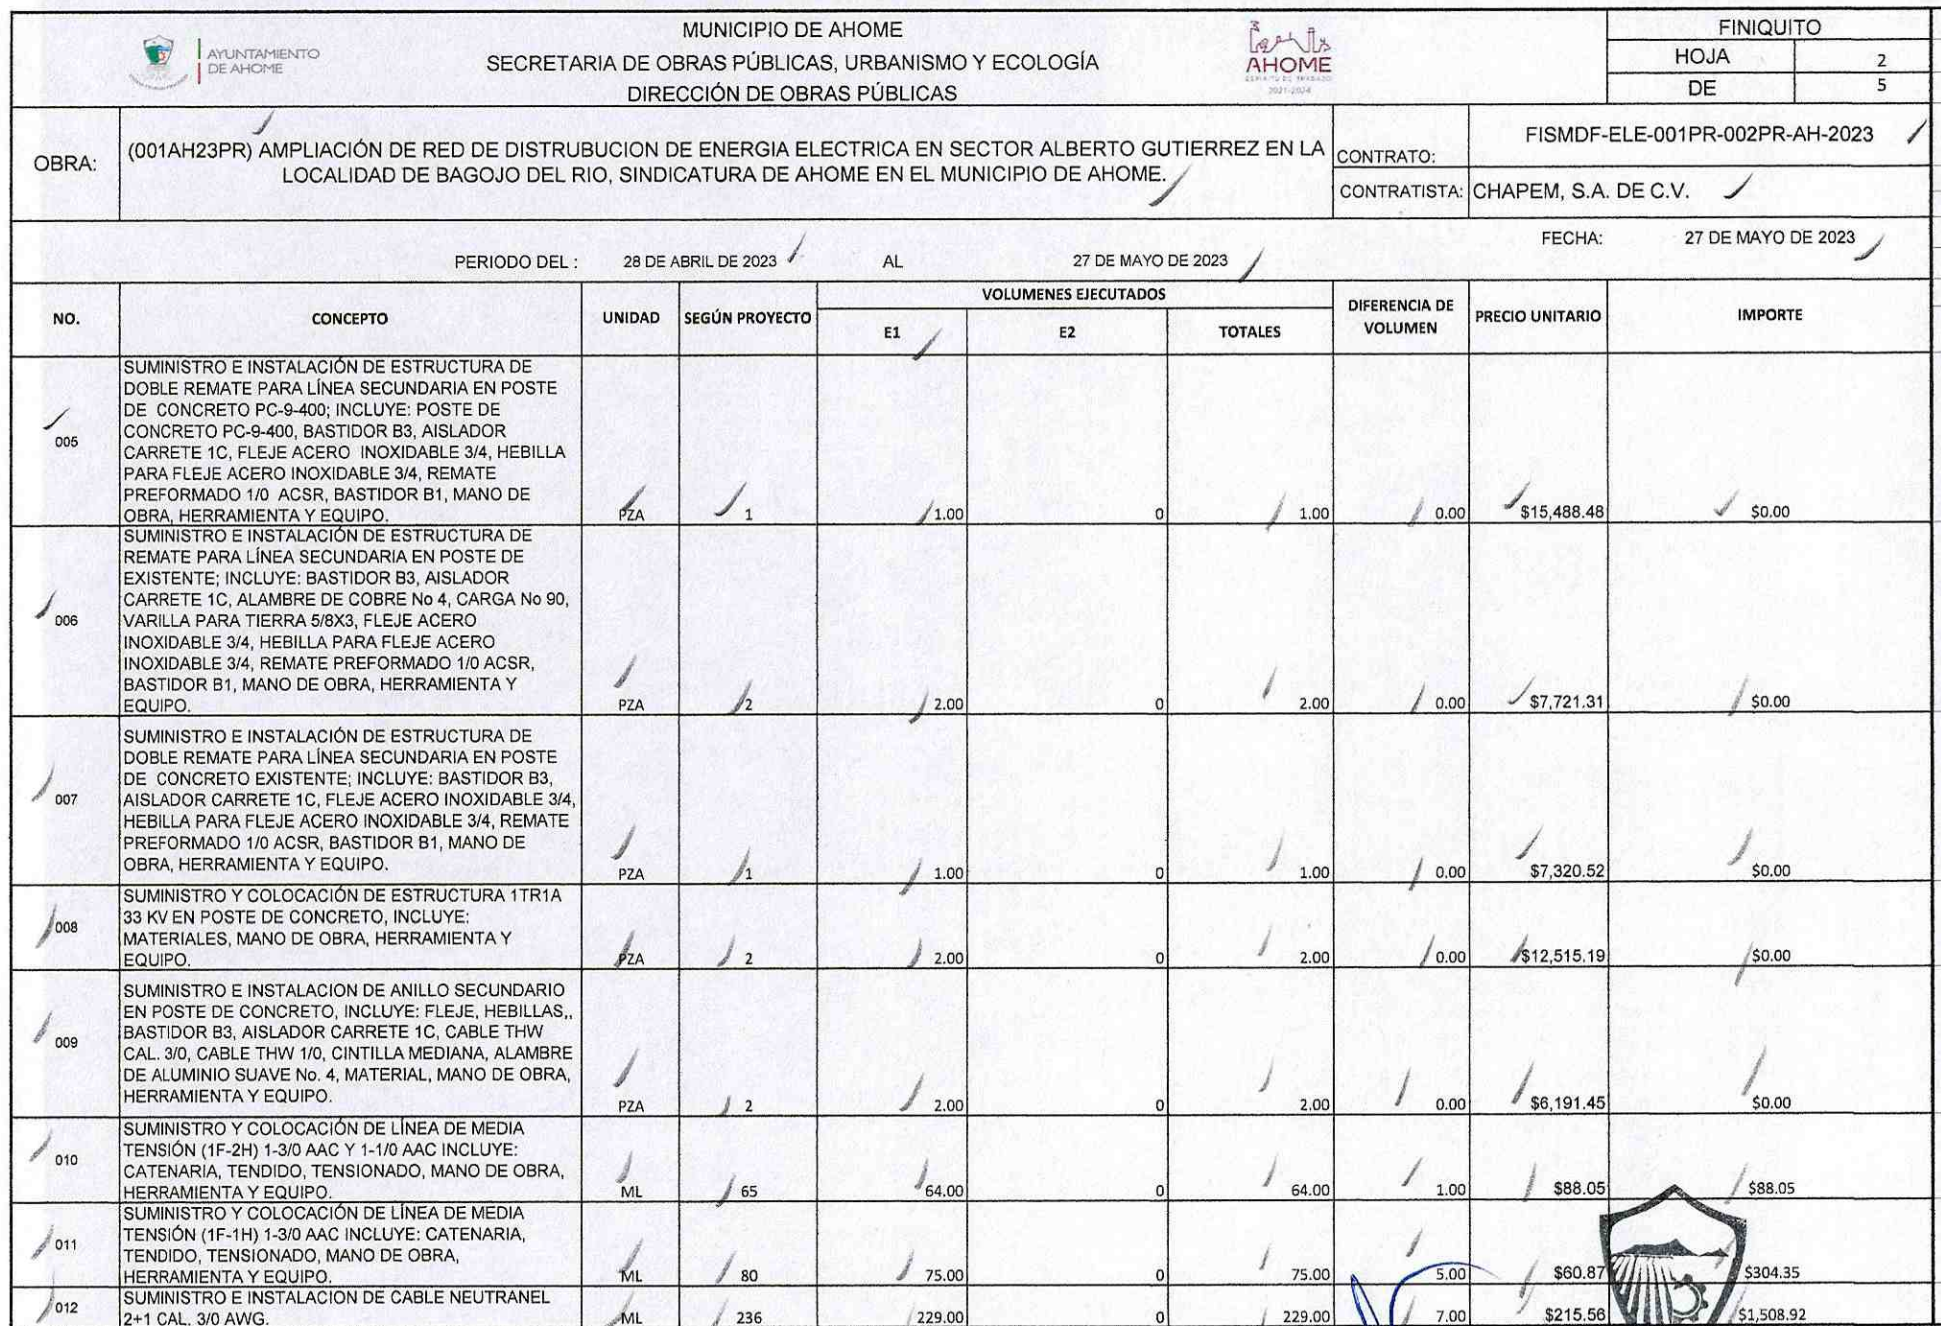 AYUNTAMIENTO
DE AHOME
MUNICIPIO DE AHOME
SECRETARIA DE OBRAS PÚBLICAS, URBANISMO Y ECOLOGÍA
DIRECCIÓN DE OBRAS PÚBLICAS
AHOME
2021-2024
FINIQUITO
HOJA 2
DE 5
OBRA:
(001AH23PR) AMPLIACIÓN DE RED DE DISTRUBUCION DE ENERGIA ELECTRICA EN SECTOR ALBERTO GUTIERREZ EN LA
LOCALIDAD DE BAGOJO DEL RIO, SINDICATURA DE AHOME EN EL MUNICIPIO DE AHOME.
CONTRATO: FISMDF-ELE-001PR-002PR-AH-2023
CONTRATISTA: CHAPEM, S.A. DE C.V.
PERIODO DEL : 28 DE ABRIL DE 2023 AL 27 DE MAYO DE 2023
FECHA: 27 DE MAYO DE 2023
NO. CONCEPTO UNIDAD SEGÚN PROYECTO
VOLUMENES EJECUTADOS
E1 E2 TOTALES
DIFERENCIA DE
VOLUMEN
PRECIO UNITARIO IMPORTE
005
SUMINISTRO E INSTALACIÓN DE ESTRUCTURA DE
DOBLE REMATE PARA LÍNEA SECUNDARIA EN POSTE
DE CONCRETO PC-9-400; INCLUYE: POSTE DE
CONCRETO PC-9-400, BASTIDOR B3, AISLADOR
CARRETE 1C, FLEJE ACERO INOXIDABLE 3/4, HEBILLA
PARA FLEJE ACERO INOXIDABLE 3/4, REMATE
PREFORMADO 1/0 ACSR, BASTIDOR B1, MANO DE
OBRA, HERRAMIENTA Y EQUIPO.
PZA 1 1.00 0 1.00 0.00 $15,488.48 $0.00
006
SUMINISTRO E INSTALACIÓN DE ESTRUCTURA DE
REMATE PARA LÍNEA SECUNDARIA EN POSTE DE
EXISTENTE; INCLUYE: BASTIDOR B3, AISLADOR
CARRETE 1C, ALAMBRE DE COBRE No 4, CARGA No 90,
VARILLA PARA TIERRA 5/8X3, FLEJE ACERO
INOXIDABLE 3/4, HEBILLA PARA FLEJE ACERO
INOXIDABLE 3/4, REMATE PREFORMADO 1/0 ACSR,
BASTIDOR B1, MANO DE OBRA, HERRAMIENTA Y
EQUIPO.
PZA 2 2.00 0 2.00 0.00 $7,721.31 $0.00
007
SUMINISTRO E INSTALACIÓN DE ESTRUCTURA DE
DOBLE REMATE PARA LÍNEA SECUNDARIA EN POSTE
DE CONCRETO EXISTENTE; INCLUYE: BASTIDOR B3,
AISLADOR CARRETE 1C, FLEJE ACERO INOXIDABLE 3/4,
HEBILLA PARA FLEJE ACERO INOXIDABLE 3/4, REMATE
PREFORMADO 1/0 ACSR, BASTIDOR B1, MANO DE
OBRA, HERRAMIENTA Y EQUIPO.
PZA 1 1.00 0 1.00 0.00 $7,320.52 $0.00
008
SUMINISTRO Y COLOCACIÓN DE ESTRUCTURA 1TR1A
33 KV EN POSTE DE CONCRETO, INCLUYE:
MATERIALES, MANO DE OBRA, HERRAMIENTA Y
EQUIPO.
PZA 2 2.00 0 2.00 0.00 $12,515.19 $0.00
009
SUMINISTRO E INSTALACION DE ANILLO SECUNDARIO
EN POSTE DE CONCRETO, INCLUYE: FLEJE, HEBILLAS,,
BASTIDOR B3, AISLADOR CARRETE 1C, CABLE THW
CAL. 3/0, CABLE THW 1/0, CINTILLA MEDIANA, ALAMBRE
DE ALUMINIO SUAVE No. 4, MATERIAL, MANO DE OBRA,
HERRAMIENTA Y EQUIPO.
PZA 2 2.00 0 2.00 0.00 $6,191.45 $0.00
010
SUMINISTRO Y COLOCACIÓN DE LÍNEA DE MEDIA
TENSIÓN (1F-2H) 1-3/0 AAC Y 1-1/0 AAC INCLUYE:
CATENARIA, TENDIDO, TENSIONADO, MANO DE OBRA,
HERRAMIENTA Y EQUIPO.
ML 65 64.00 0 64.00 1.00 $88.05 $88.05
011
SUMINISTRO Y COLOCACIÓN DE LÍNEA DE MEDIA
TENSIÓN (1F-1H) 1-3/0 AAC INCLUYE: CATENARIA,
TENDIDO, TENSIONADO, MANO DE OBRA,
HERRAMIENTA Y EQUIPO.
ML 80 75.00 0 75.00 5.00 $60.87 $304.35
012
SUMINISTRO E INSTALACION DE CABLE NEUTRANEL
2+1 CAL. 3/0 AWG.
ML 236 229.00 0 229.00 7.00 $215.56 $1,508.92